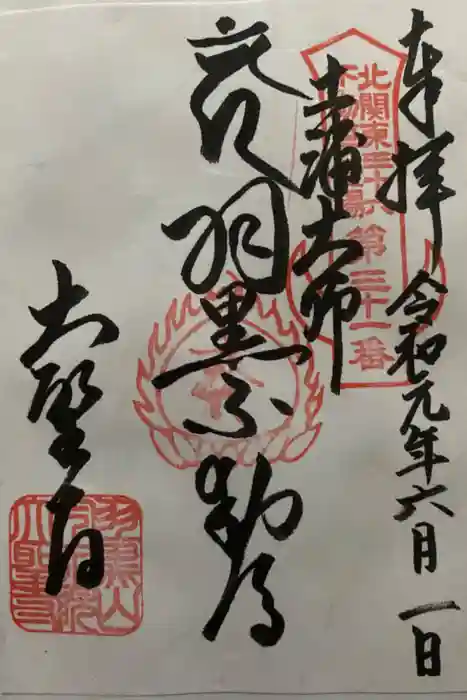 奉拝
令和元年六月一日
北関東三十六
不動尊霊場
第三十一番
土浦大師
羽黒不動尊
大聖寺
羽黒山
大聖寺